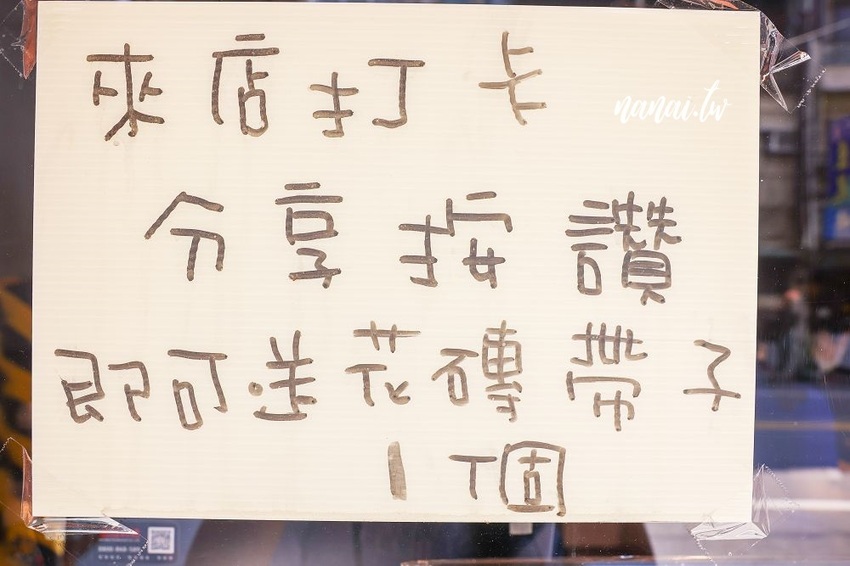 來店打卡
nanai.tw
分享按讚
即可送花磚帶子
1個